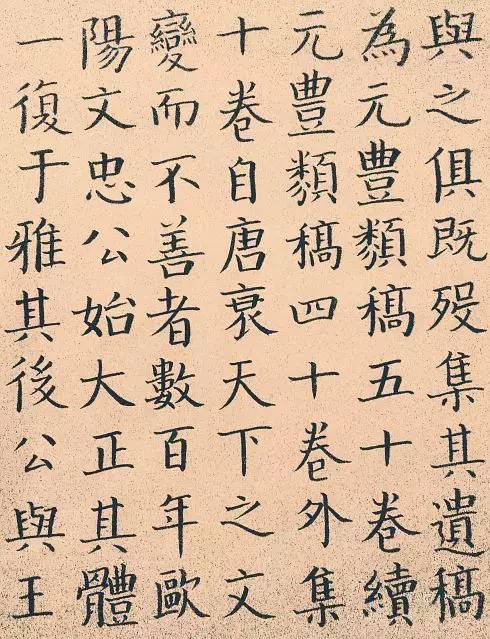 與之俱既歿集其遺稿
為元豐類稿五十卷續
元豐類稿四十卷外集
十卷自唐衰天下之文
變而不善者數百年歐
陽文忠公始大正其體
一復于雅其後公與王